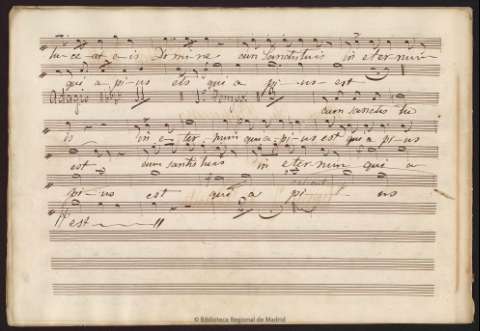 lu-ce-at e-is Domine cum Sanctistuis in eternum
quí a pi-us ets quí a pi-us-est
Adagio
1º Tempo.
cum sanctis tu
is in e-ter-num quia-pi-us est quí a pi-us
est cum santis tuis in eternum quí a
pi-us est quí a pi-us
est
© Biblioteca Regional de Madrid